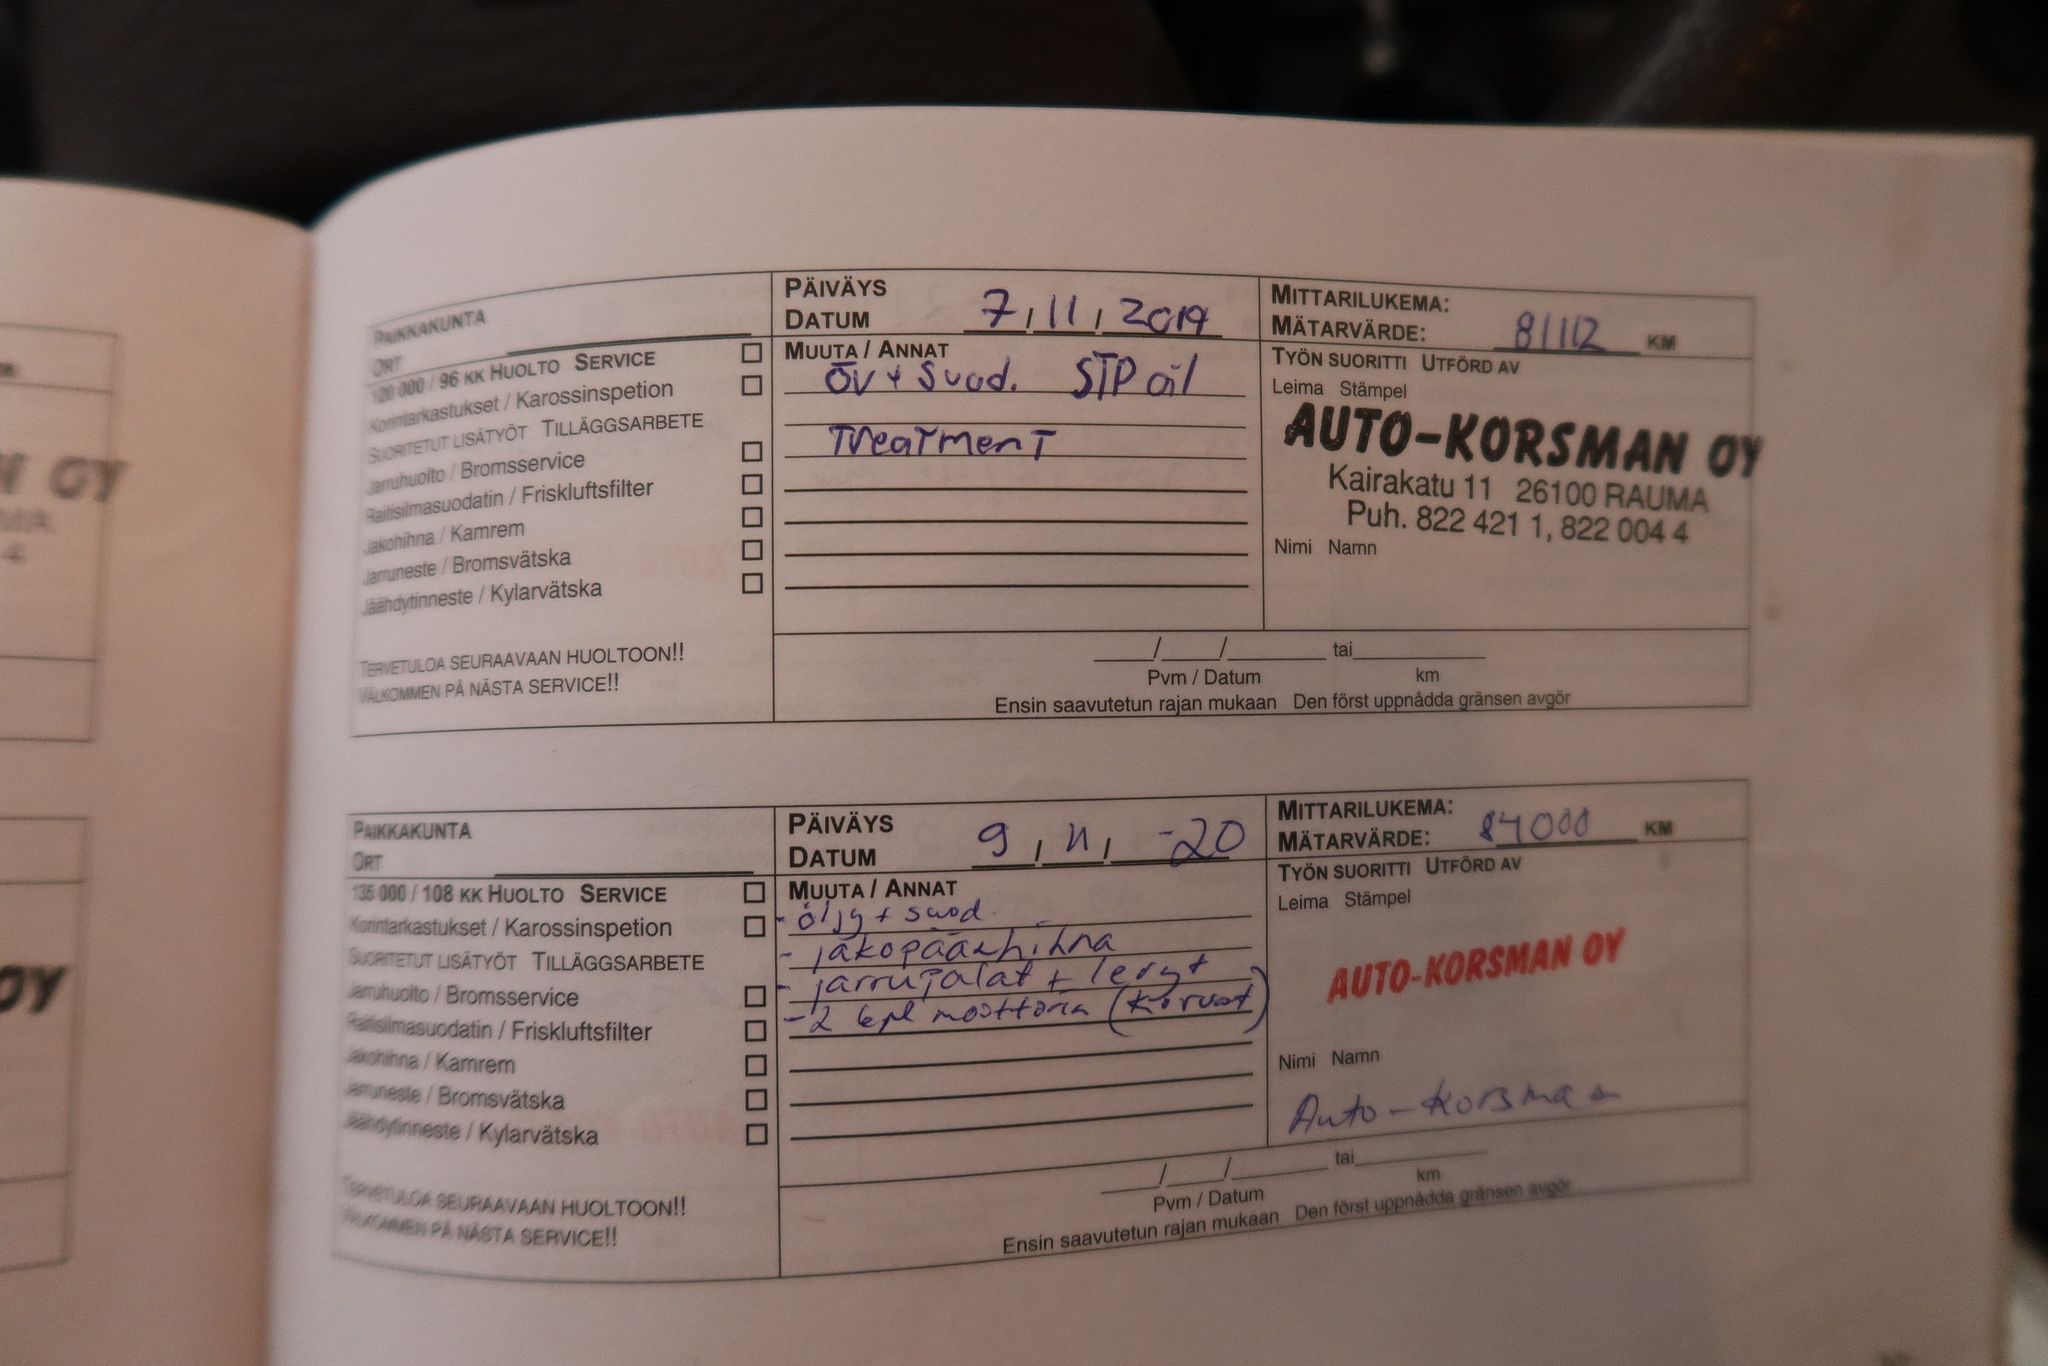 OY
4
OY
PAIKKAKUNTA
ORT
PÄIVÄYS
DATUM 7, 11, 2019
MITTARILUKEMA:
MÄTARVÄRDE: 81112 KM
120 000 / 96 KK HUOLTO SERVICE
Korintarkastukset / Karossinspetion
SUORITETUT LISÄTYÖT TILLÄGGSARBETE
Jarruhuolto / Bromsservice
Raitisilmasuodatin / Friskluftsfilter
Jakohihna / Kamrem
Jarruneste / Bromsvätska
Jäähdytinneste / Kylarvätska
TERVETULOA SEURAAVAAN HUOLTOON!!
VÄLKOMMEN PÅ NÄSTA SERVICE!!
MUUTA / ANNAT
ÖV + Suod. STP oil
Treatment
TYÖN SUORITTI UTFÖRD AV
Leima Stämpel
AUTO-KORSMAN OY
Kairakatu 11 26100 RAUMA
Puh. 822 421 1, 822 004 4
Nimi Namn
___/___/______ tai________
Pvm / Datum km
Ensin saavutetun rajan mukaan Den först uppnådda gränsen avgör
PAIKKAKUNTA
ORT
PÄIVÄYS
DATUM 9, 11, -20
MITTARILUKEMA:
MÄTARVÄRDE: 84000 KM
135 000 / 108 KK HUOLTO SERVICE
Korintarkastukset / Karossinspetion
SUORITETUT LISÄTYÖT TILLÄGGSARBETE
Jarruhuolto / Bromsservice
Raitisilmasuodatin / Friskluftsfilter
Jakohihna / Kamrem
Jarruneste / Bromsvätska
Jäähdytinneste / Kylarvätska
TERVETULOA SEURAAVAAN HUOLTOON!!
VÄLKOMMEN PÅ NÄSTA SERVICE!!
MUUTA / ANNAT
- öljy + suod.
- jakopäänhihna
- jarrupalat + levyt
- 2 kpl moottoria
TYÖN SUORITTI UTFÖRD AV
Leima Stämpel
AUTO-KORSMAN OY
Nimi Namn
Auto-Korsman
___/___/______ tai________
Pvm / Datum km
Ensin saavutetun rajan mukaan Den först uppnådda gränsen avgör